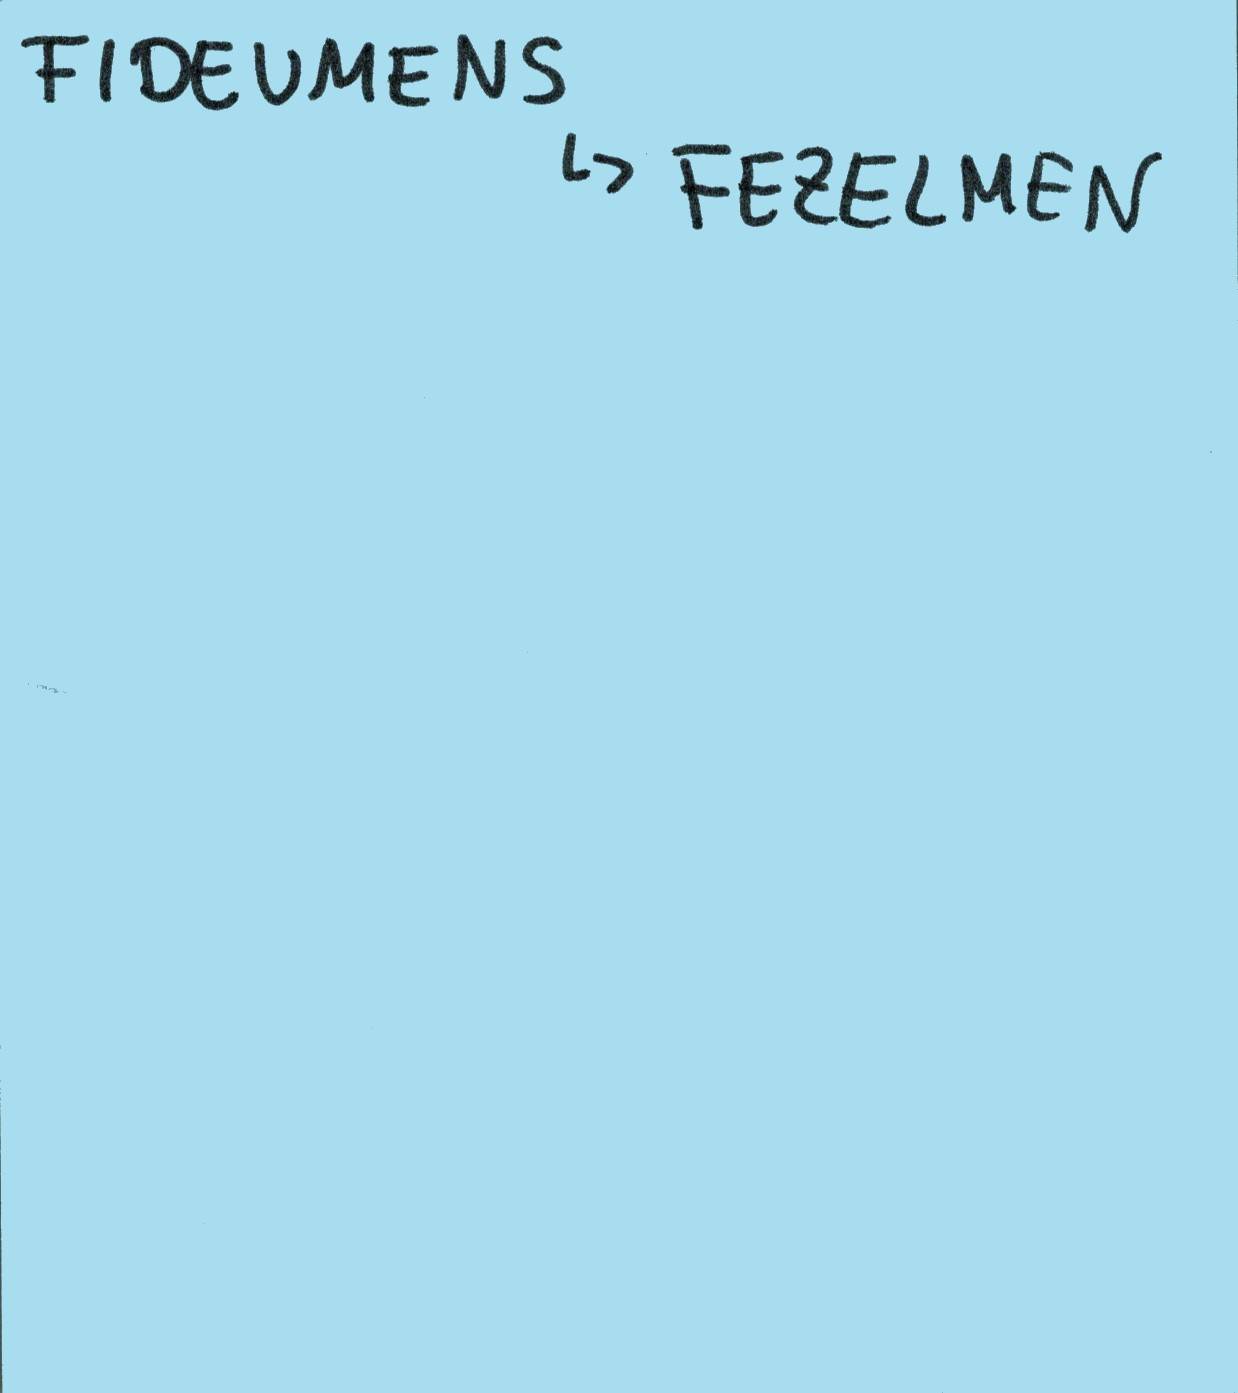 FIDEUMENS
↳ FEZELMEN